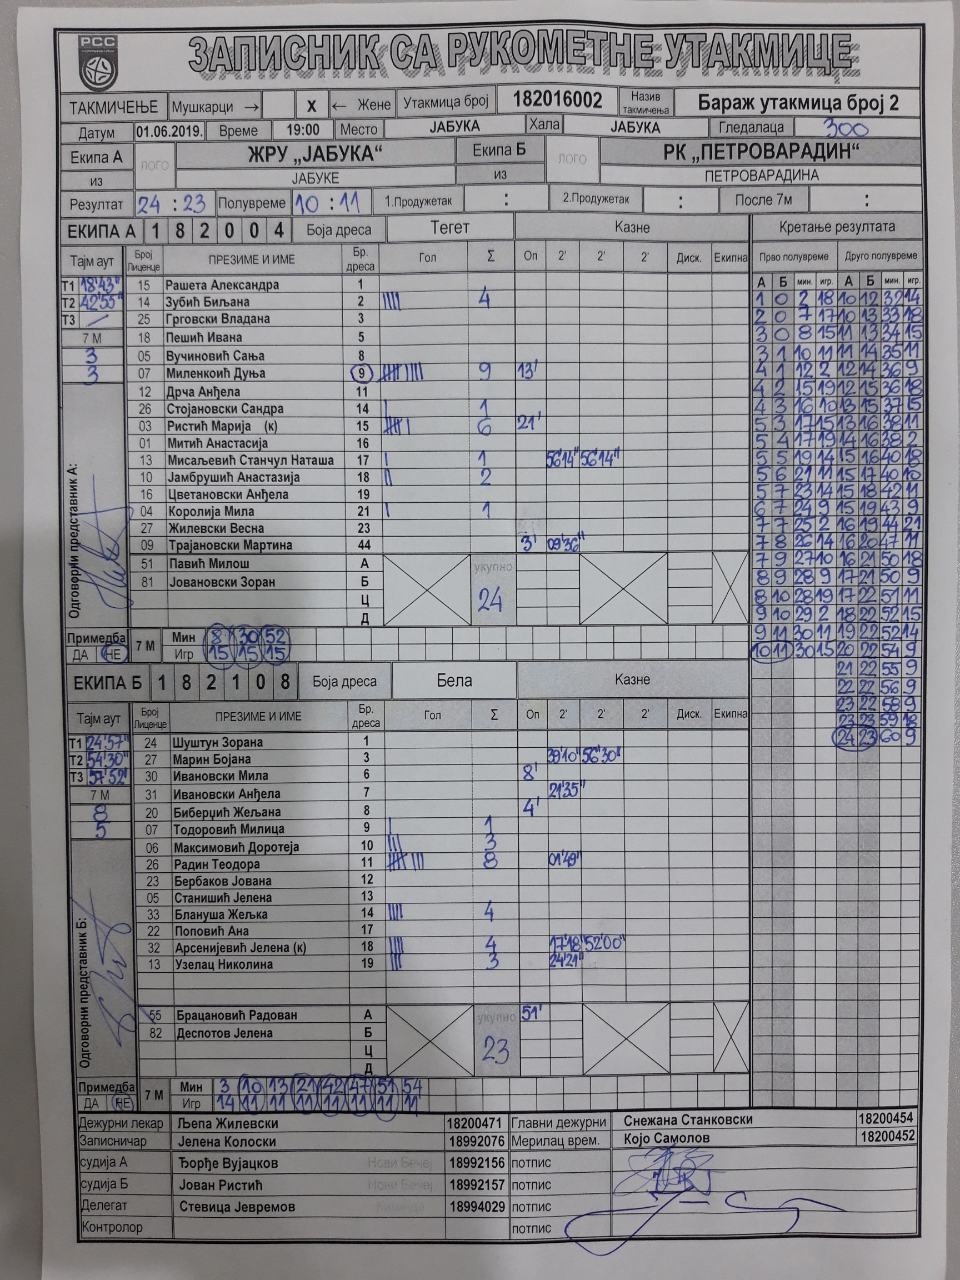 РСС
ЗАПИСНИК СА РУКОМЕТНЕ УТАКМИЦЕ
ТАКМИЧЕЊЕ Мушкарци → X ← Жене Утакмица број 182016002 Назив такмичења Бараж утакмица број 2
Датум 01.06.2019. Време 19:00 Место ЈАБУКА Хала ЈАБУКА Гледалаца 300
Екипа А ЛОГО ЖРУ „ЈАБУКА“ Екипа Б ЛОГО РК „ПЕТРОВАРАДИН“
из ЈАБУКЕ из ПЕТРОВАРАДИНА
Резултат 24 : 23 Полувреме 10 : 11 1.Продужетак : 2.Продужетак : После 7м :
ЕКИПА А 1 8 2 0 0 4 Боја дреса Тегет Казне Кретање резултата
Тајм аут Број Лиценце ПРЕЗИМЕ И ИМЕ Бр. дреса Гол Σ Оп 2' 2' 2' Диск. Екипна Прво полувреме Друго полувреме
А Б мин. игр. А Б мин. игр.
Т1 18'43" 15 Рашета Александра 1 1 0 2 18 10 12 32 14
Т2 42'55" 14 Зубић Биљана 2 |||| 4 2 0 7 17 10 13 33 18
Т3 25 Грговски Владана 3 3 0 8 15 11 13 34 15
7 М 18 Пешић Ивана 5 3 1 10 11 11 14 35 11
3 05 Вучиновић Сања 8 4 1 12 2 12 14 36 9
3 07 Миленкоић Дуња 9 9 13' 4 2 15 19 12 15 36 18
12 Дрча Анђела 11 4 3 16 10 13 15 37 15
26 Стојановски Сандра 14 | 1 5 3 17 15 13 16 38 11
03 Ристић Марија (к) 15 6 21' 5 4 17 19 14 16 38 2
01 Митић Анастасија 16 5 5 19 14 15 16 40 18
13 Мисаљевић Станчул Наташа 17 | 1 56'14" 56'14" 5 6 21 11 15 17 40 10
10 Јамбрушић Анастазија 18 || 2 5 7 23 14 15 18 42 11
16 Цветановски Анђела 19 6 7 24 9 15 19 43 9
04 Королија Мила 21 | 1 7 7 25 2 16 19 44 21
27 Жилевски Весна 23 7 8 26 14 16 20 47 11
09 Трајановски Мартина 44 3' 09'36" 7 9 27 10 16 21 50 18
51 Павић Милош А укупно 8 9 28 9 17 21 50 9
81 Јовановски Зоран Б 24 8 10 28 19 17 22 51 11
Ц 9 10 29 2 18 22 52 15
Д 9 11 30 11 19 22 52 14
Одговорни представник А:
Примедба 7 М Мин 8 30 52 10 11 30 15 20 22 54 9
ДА НЕ Игр 15 15 15 21 22 55 9
22 22 56 9
23 22 58 9
23 23 59 18
24 23 60 9
ЕКИПА Б 1 8 2 1 0 8 Боја дреса Бела Казне
Тајм аут Број Лиценце ПРЕЗИМЕ И ИМЕ Бр. дреса Гол Σ Оп 2' 2' 2' Диск. Екипна
Т1 24'57" 24 Шуштун Зорана 1
Т2 54'30" 27 Марин Бојана 3 39'10" 56'30"
Т3 57'52" 30 Ивановски Мила 6 8'
7 М 31 Ивановски Анђела 7 21'35"
8 20 Биберџић Жељана 8 4'
5 07 Тодоровић Милица 9 | 1
06 Максимовић Доротеја 10 ||| 3
26 Радин Теодора 11 8 01'49"
23 Бербаков Јована 12
05 Станишић Јелена 13
33 Блануша Жељка 14 |||| 4
22 Поповић Ана 17
32 Арсенијевић Јелена (к) 18 |||| 4 17'18" 52'00"
13 Узелац Николина 19 ||| 3 24'21"
55 Брацановић Радован А укупно 51'
82 Деспотов Јелена Б 23
Ц
Д
Одговорни представник Б:
Примедба 7 М Мин 3 10 13 21 42 47 51 54
ДА НЕ Игр 14 11 11 11 11 11 11 11
Дежурни лекар Љепа Жилевски 18200471 Главни дежурни Снежана Станковски 18200454
Записничар Јелена Колоски 18992076 Мерилац врем. Којо Самолов 18200452
судија А Ђорђе Вујацков Нови Бечеј 18992156 потпис
судија Б Јован Ристић Нови Бечеј 18992157 потпис
Делегат Стевица Јевремов 18994029 потпис
Контролор потпис